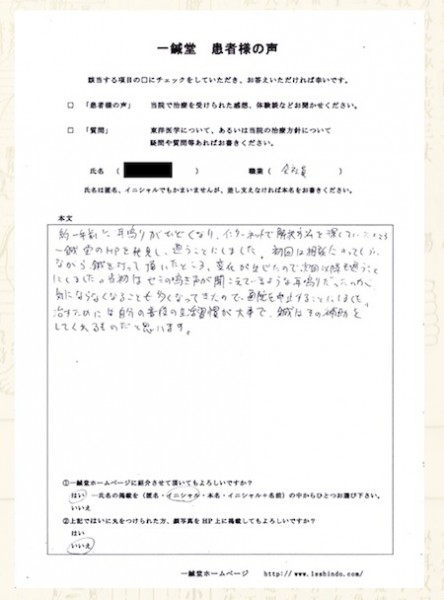 一鍼堂 患者様の声
該当する項目の□にチェックをしていただき、お答えいただければ幸いです。
□ 「患者様の声」 当院で治療を受けられた感想、体験談などお聞かせください。
□ 「質問」 東洋医学について、あるいは当院の治療方針について
疑問や質問等あればお書きください。
氏名 ( ) 職業 ( 会社員 )
氏名は匿名、イニシャルでもかまいませんが、差し支えなければ本名をお書きください。
本文
約一年前に耳鳴りがひどくなり、インターネットで解決方法を探していたところ
一鍼堂のHPを発見し、通うことにしました。初回は相談にのってもらい
ながら鍼を打って頂いたところ、変化が生じたので次回以降も通うこと
にしました。当初はセミの鳴き声が聞こえているような耳鳴りだったのが
気にならなくなることも多くなってきたので、通院を中止することにしました
治すためには自分の普段の生活習慣が大事で、鍼はその補助を
してくれるものだと思います。
①一鍼堂ホームページに紹介させて頂いてもよろしいですか?
はい ―氏名の掲載を(匿名・イニシャル・本名・イニシャル+名前)の中からひとつお選び下さい。
いいえ
②上記ではいに丸をつけられた方、顔写真をHP上に掲載してもよろしいですか?
はい
いいえ
一鍼堂ホームページ http://www.isshindo.com/